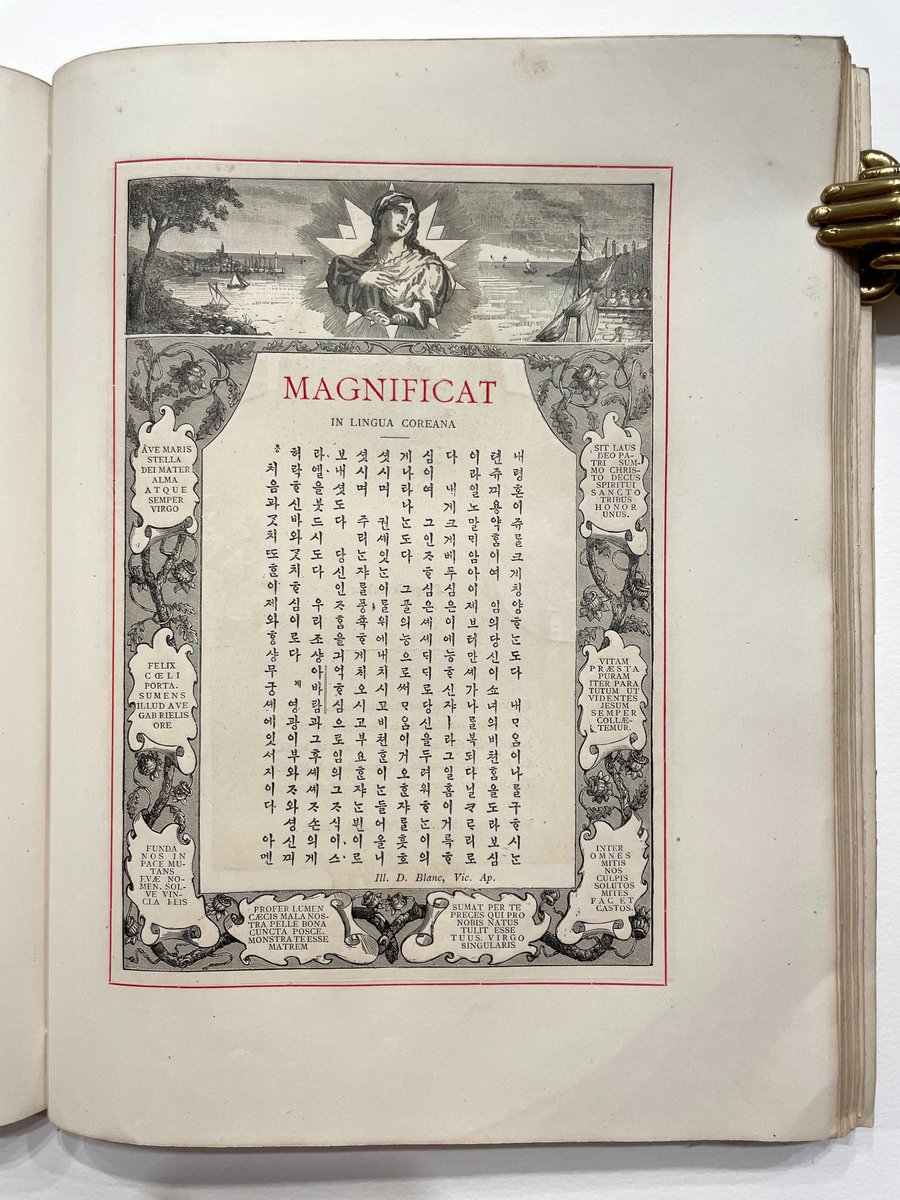 MAGNIFICAT
IN LINGUA COREANA
내령혼이쥬ᄅᆞᆯ크게칭양ᄒᆞᄂᆞᆫ도다 내ᄆᆞ옴이나ᄅᆞᆯ구ᄒᆞ시ᄂᆞᆫ
텬쥬ᄭᅴ용약ᄒᆞᆷ이여 임의당신이쇼녀의비쳔ᄒᆞᆷ을도라보심
이라일노말ᄆᆡ암아이제브터만셰가나ᄅᆞᆯ복되다닐ᄏᆞᄅᆞ리로
다 내게크게베푸심은이에능ᄒᆞ신쟈ㅣ라그일홈이거륵ᄒᆞ
심이여 그인ᄌᆞᄒᆞ심은셰셰ᄃᆡᄃᆡ로당신을두려워ᄒᆞᄂᆞᆫ이의
게나타나ᄂᆞᆫ도다 그풀의능으로써ᄆᆞ옴이거오ᄒᆞᆫ쟈ᄅᆞᆯ흣흐
셧시며 권셰잇ᄂᆞᆫ이ᄅᆞᆯ위에내치시고비쳔ᄒᆞᆫ이ᄂᆞᆫ들어올니
셧시며 주리ᄂᆞᆫ쟈ᄅᆞᆯ풍죡ᄒᆞ게치오시고부요ᄒᆞᆫ쟈ᄂᆞᆫ뷘이로
보내셧도다 당신인ᄌᆞᄒᆞᆷ을긔억ᄒᆞ심으로임의그ᄌᆞ식이스
라엘을붓드시도다 우리조샹아바람과그후셰셰ᄌᆞ손의게
허락ᄒᆞ신바와ᄀᆞᆺ치ᄒᆞ심이로다 계 영광이부와ᄌᆞ와셩신ᄭᅴ
응 처음과ᄀᆞᆺ치ᄯᅩᄒᆞᆫ이제와ᄒᆞᆼ샹무궁셰에잇서지이다 아멘
Ill. D. Blanc, Vic. Ap.
AVE MARIS
STELLA
DEI MATER
ALMA
ATQUE
SEMPER
VIRGO
FELIX
CŒLI
PORTA.
SUMENS
ILLUD AVE
GABRIELIS
ORE
FUNDA
NOS IN
PACE MU-
TANS
EVÆ NO-
MEN. SOL-
VE VIN-
CLA REIS
PROFER LUMEN
CÆCIS MALA NOS-
TRA PELLE BONA
CUNCTA POSCE.
MONSTRA TE ESSE
MATREM
SUMAT PER TE
PRECES QUI PRO
NOBIS NATUS
TULIT ESSE
TUUS. VIRGO
SINGULARIS
INTER
OMNES
MITIS
NOS
CULPIS
SOLUTOS
MITES
FAC ET
CASTOS.
VITAM
PRÆSTA
PURAM
ITER PARA
TUTUM UT
VIDENTES
JESUM
SEMPER
COLLÆ-
TEMUR.
SIT LAUS
DEO PA-
TRI SUM-
MO CHRIS-
TO DECUS
SPIRITUI
SANCTO
TRIBUS
HONOR
UNUS.